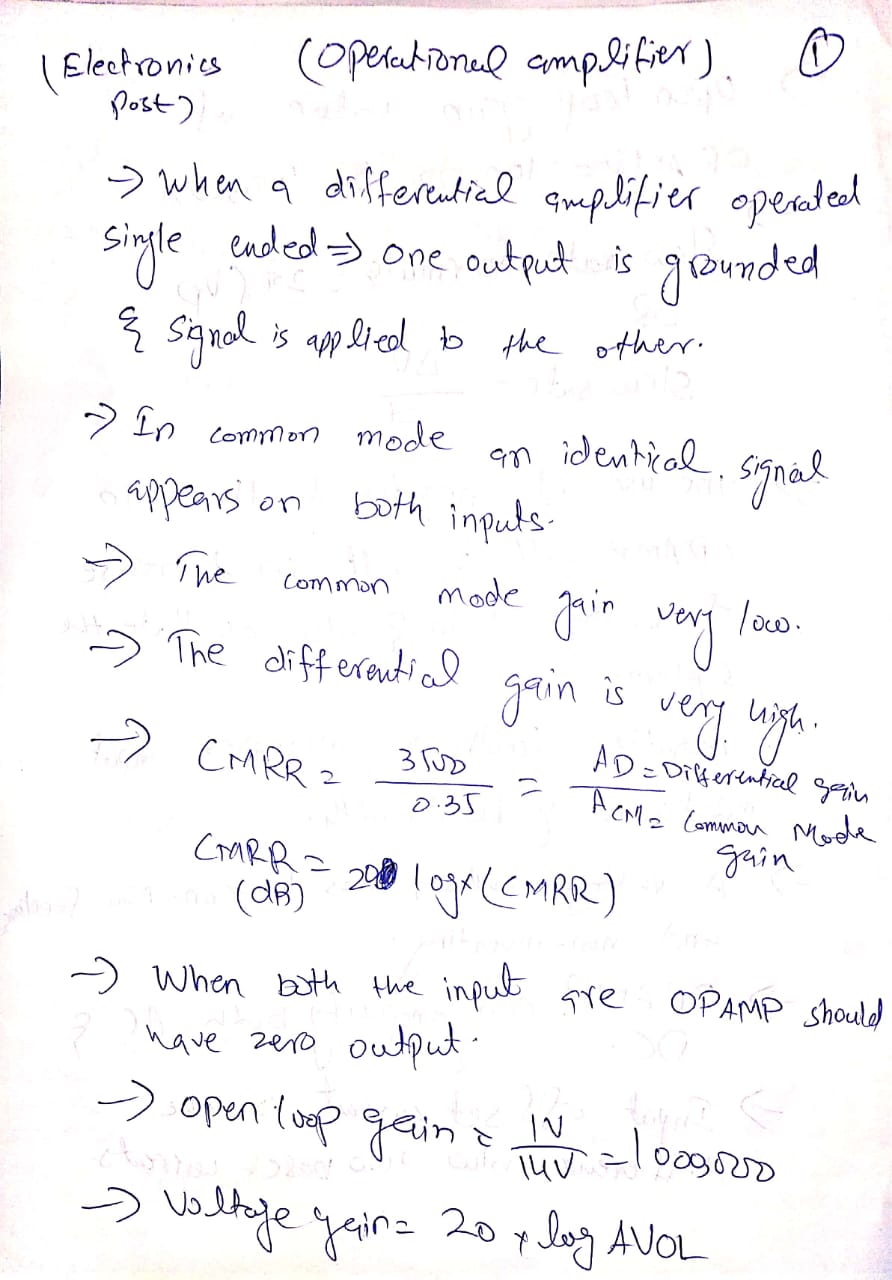 (Electronics (Operational amplifier). 1
Post)
→ When a differential amplifier operated
single ended ⇒ one output is grounded
& signal is applied to the other.
→ In common mode an identical signal
appears on both inputs.
→ The common mode gain very low.
→ The differential gain is very high.
→ CMRR = 3500 / 0.35 = AD = Differential gain / ACM = Common Mode
gain
CMRR = 20 log x (CMRR)
(dB)
→ When both the input are OPAMP should
have zero output.
→ open loop gain = 1V / 1uV = 1000000
→ Voltage gain = 20 x log AVOL